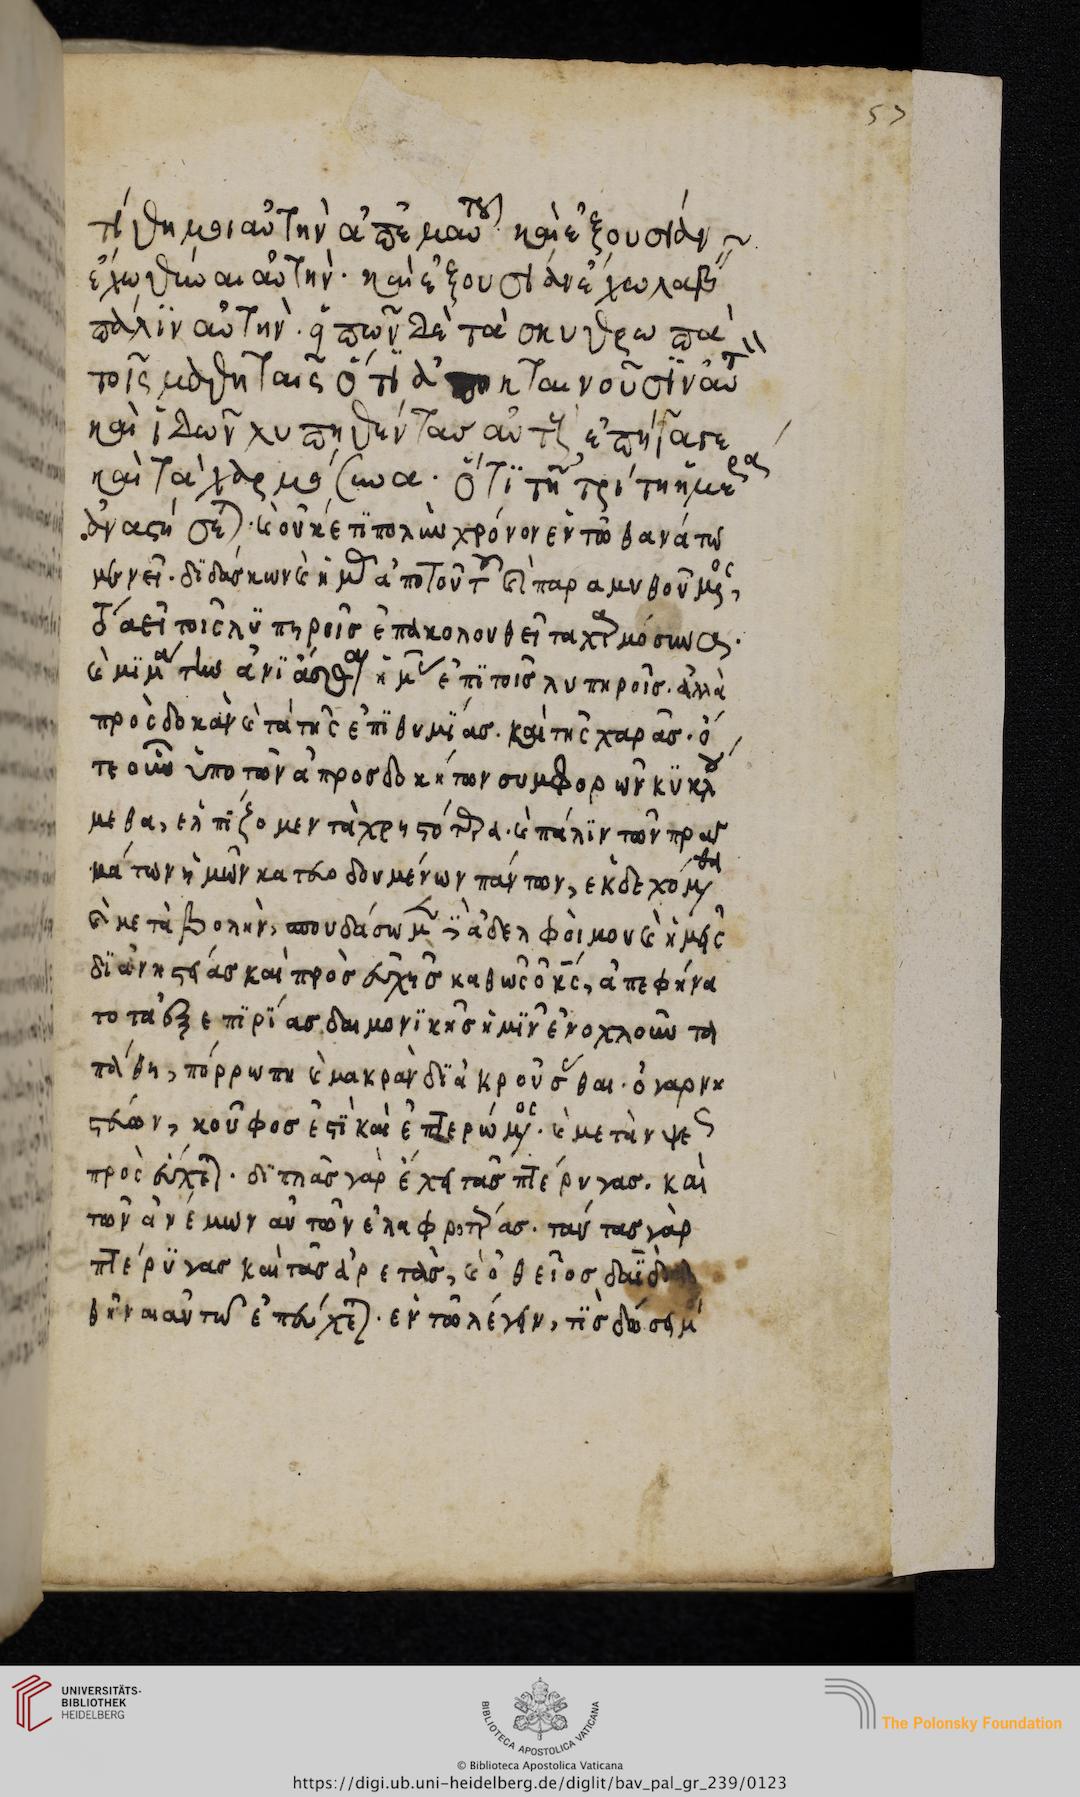 57
τίθημι αὐτὴν ἀπ' ἐμαυτοῦ· καὶ ἐξουσίαν
ἔχω θεῖναι αὐτὴν· καὶ ἐξουσίαν ἔχω λαβεῖν
πάλϊν αὐτὴν· εἰπὼν δὲ τὰ σκυθρωπὰ
τοῖς μαθηταῖς ὅτϊ ἀποκταινοῦσϊν αὐτὸν
καὶ ἰδὼν λυπηθέντας αὐτοὺς, ἐπήγαγε
καὶ τὰ χαρμόσυνα· ὅτϊ τῇ τρίτῃ ἡμέρᾳ
ἀναστήσεται· καὶ οὐκ ἐπϊπολὺν χρόνον ἐν τῷ θανάτῳ
μένει· δϊδάσκων καὶ ἡμᾶς ἀπὸ τούτου καὶ παραμυθούμενος,
ὅτι ἀεὶ τοῖς λϋπηροῖς ἐπακολουθεῖ τὰ χαρμόσυνα·
καὶ μὴ μάτην ἀνϊᾶσθαι ἡμᾶς ἐπϊ τοῖς λυπηροῖς· ἀλλὰ
προσδοκᾶν καὶ τὰ τῆς ἐπϊθυμΐας· καὶ τῆς χαρᾶς· ὅ
τε οὖν ὑπὸ τῶν ἀπροσδοκήτων συμφορῶν κϋκλού
μεθα, ἐλπΐζομεν τὰ χρηστότερα· καὶ πάλϊν τῶν πραγ
μάτων ἡμῶν κατευοδουμένων πάντων, ἐκδεχόμεθα
καὶ μεταβολὴν, σπουδάσωμεν ἀδελφοί μου καὶ ἡμεῖς
δϊὰ νηστείας καὶ προσευχῆς καθὼς ὁ κς, ἀπεφήνα
το τὰ ἐξ ἐπϊρΐας δαιμονϊκῆς ἡμῖν ἐνοχλοῦντα
πάθη, πόρρωπη καὶ μακρὰν δϊακρούσθαι· ὁ γὰρ νη
στεύων, κοῦφος ἐστϊ καὶ ἐπτερώμενος· καὶ μετὰ νήψεως
προσεύχεται· δϊττὰς γὰρ ἔχει τὰς πτέρυγας· καὶ
τῶν ἀνέμων αὐτῶν ἐλαφροτέρας· ταύτας γὰρ
πτέρϋγας καὶ τὰς ἀρετὰς, καὶ ὁ θεῖος δαϋϊδ δο
θῆναι αὐτῷ ἐπεύχεται· ἐν τῷ λέγειν, τΐς δώσει μοι
UNIVERSITÄTS-
BIBLIOTHEK
HEIDELBERG
BIBLIOTECA APOSTOLICA VATICANA
The Polonsky Foundation
© Biblioteca Apostolica Vaticana
https://digi.ub.uni-heidelberg.de/diglit/bav_pal_gr_239/0123